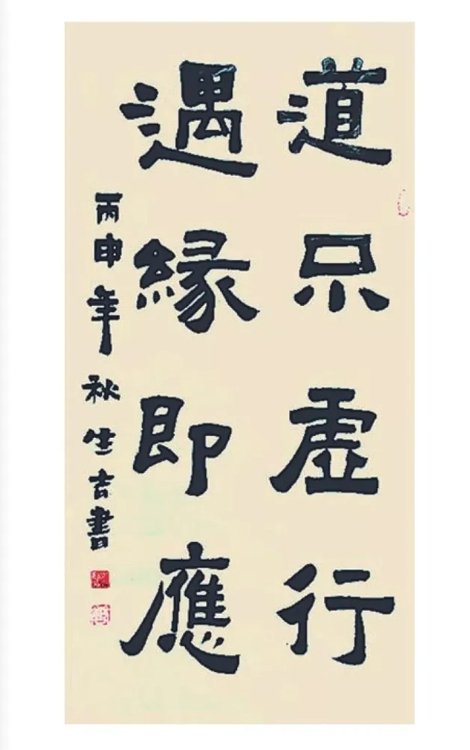 道只虛行
遇緣即應
丙申年秋生吉書